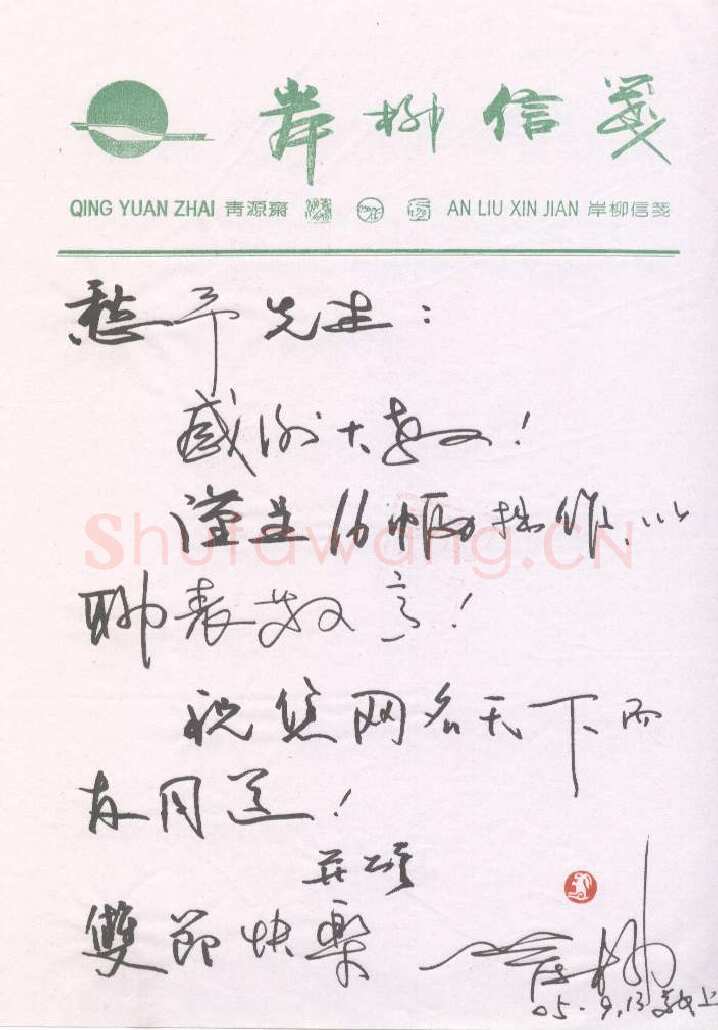 岸柳信箋
QING YUAN ZHAI 青源齋 AN LIU XIN JIAN 岸柳信箋
愁予先生：
感谢大教！
谨呈 幅拙作、以
聊表敬意！
祝您网名天下而
有同道！
并颂
雙節快樂
岸柳
05.9.13敬上
Shufawang.CN